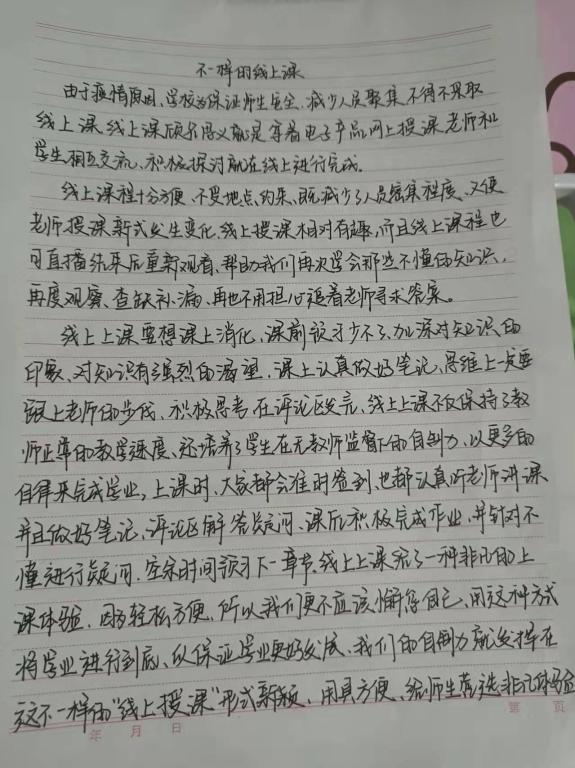 不一样的线上课
由于疫情原因,学校为保证师生安全,减少人员聚集,不得不采取
线上课,线上课顾名思义就是靠着电子产品网上授课,老师和
学生相互交流、积极探讨就在线上进行完成。
线上课程十分方便、不受地点约束、既减少了人员密集程度、又使
老师授课新式发生变化,线上授课相对有趣,而且线上课程也
可直播结束后重新观看、帮助我们再次学会那些不懂的知识,
再度观察、查缺补漏、再也不用担心追着老师寻求答案。
线上上课要想课上消化,课前预习少不了,加深对知识的
印象、对知识有强烈的渴望,课上认真做好笔记,思维上一定要
跟上老师的步伐、积极思考,在评论区发言,线上上课不仅保持了教
师正常的教学速度、还培养了学生在无教师监督下的自制力,以更多的
自律来完成学业,上课时、大家都会准时签到、也都认真听老师讲课
并且做好笔记、评论区解答疑问、课后积极完成作业,并针对不
懂进行疑问,空余时间预习下一章节,线上上课给了一种非凡的上
课体验,因为轻松方便,所以我们更不应该懈怠自己,用这种方式
将学业进行到底、以保证学业更好发展,我们的自制力就发挥在
这不一样的“线上授课”形式新颖,用具方便、给师生营造非凡体验
年 月 日 第 页